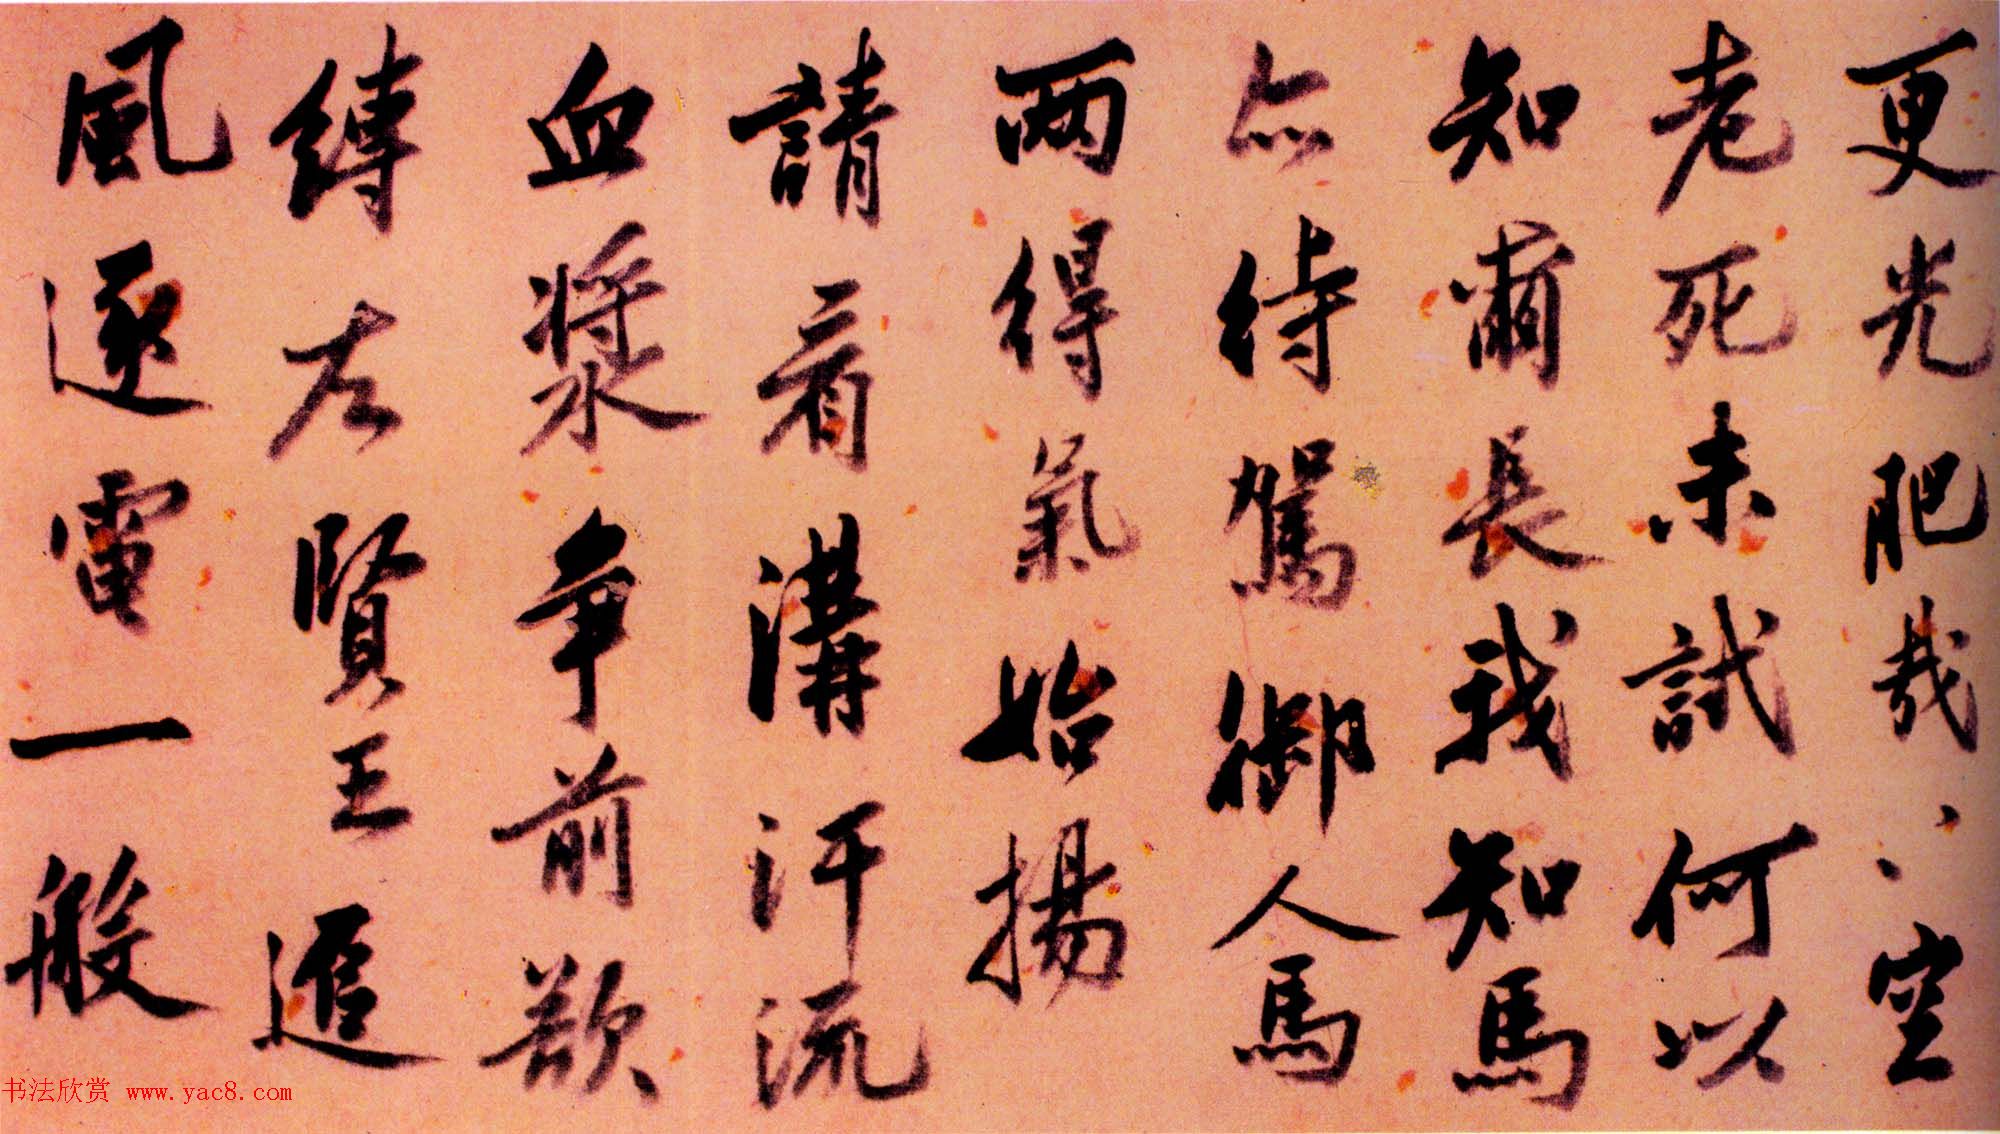 更光肥哉、、空
老死未試何以
知爾長我知馬
亦待駕御人馬
兩得氣始揚
請看溝汗流
血漿爭前欲
縛左賢王遁
風逐電一般
书法欣赏 www.yac8.com